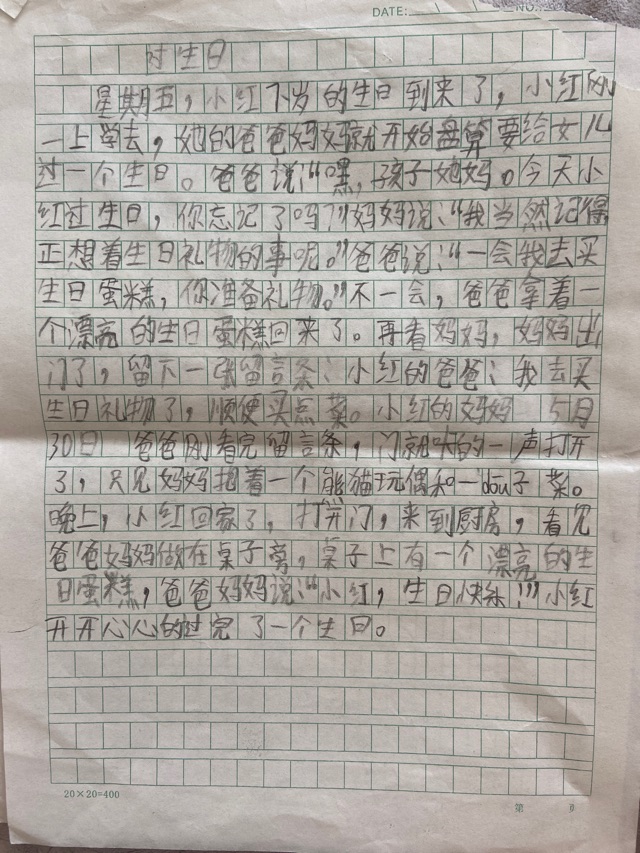 DATE: NO.:
过生日
星期五，小红下岁的生日到来了，小红刚
一上学去，她的爸爸妈妈就开始盘算要给女儿
过一个生日。爸爸说：“嘿，孩子她妈。今天小
红过生日，你忘记了吗？”妈妈说：“我当然记得
正想着生日礼物的事呢。”爸爸说：“一会我去买
生日蛋糕，你准备礼物。”不一会，爸爸拿着一
个漂亮的生日蛋糕回来了。再看妈妈，妈妈出
门了，留下一张留言条：小红的爸爸：我去买
生日礼物了，顺便买点菜。小红的妈妈 5月
30日 爸爸刚看完留言条，门就咔的一声打开
了，只见妈妈抱着一个熊猫玩偶和一dōu子菜。
晚上，小红回家了，打开门，来到厨房，看见
爸爸妈妈做在桌子旁，桌子上有一个漂亮的生
日蛋糕，爸爸妈妈说：“小红，生日快乐！”小红
开开心心的过完了一个生日。
20×20=400 第 页